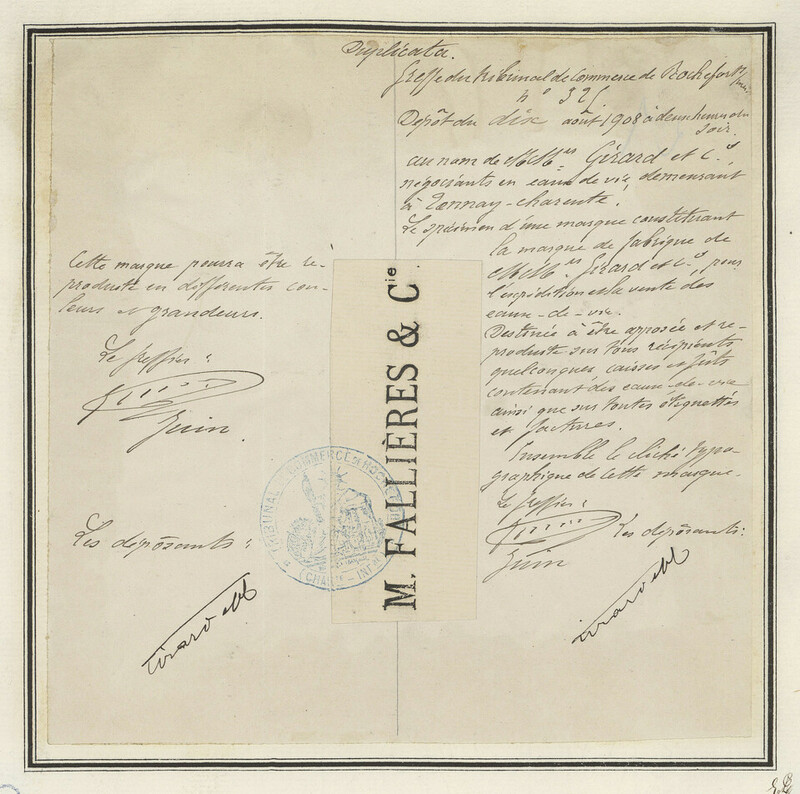 Duplicata.
Greffe du tribunal de Commerce de Rochefort s/mer
N° 325.
Dépôt du dix août 1908 à deux heures du
soir.
au nom de MM.rs Girard et C.ie,
négociants en eaux de vie, demeurant
à Tonnay-charente.
Le spécimen d'une marque constituant
la marque de fabrique de
MM.rs Girard et C.ie, pour
l'expédition et la vente des
eaux-de-vie.
Destinée à être apposée et re-
produite sur tous récipients
quelconques caisses et fûts
contenant des eaux-de-vie
ainsi que sur toutes étiquettes
et factures.
Ensemble le cliché typo-
graphique de cette marque.
Le greffier:
Juin
Les déposants:
Girard et C
Cette marque pourra être re-
produite en différentes cou-
leurs et grandeurs.
Le greffier:
Juin.
Les déposants:
Girard et C
M. FALLIÈRES & Cie
TRIBUNAL DE COMMERCE DE ROCHEFORT
(CHARTE - INFRE)